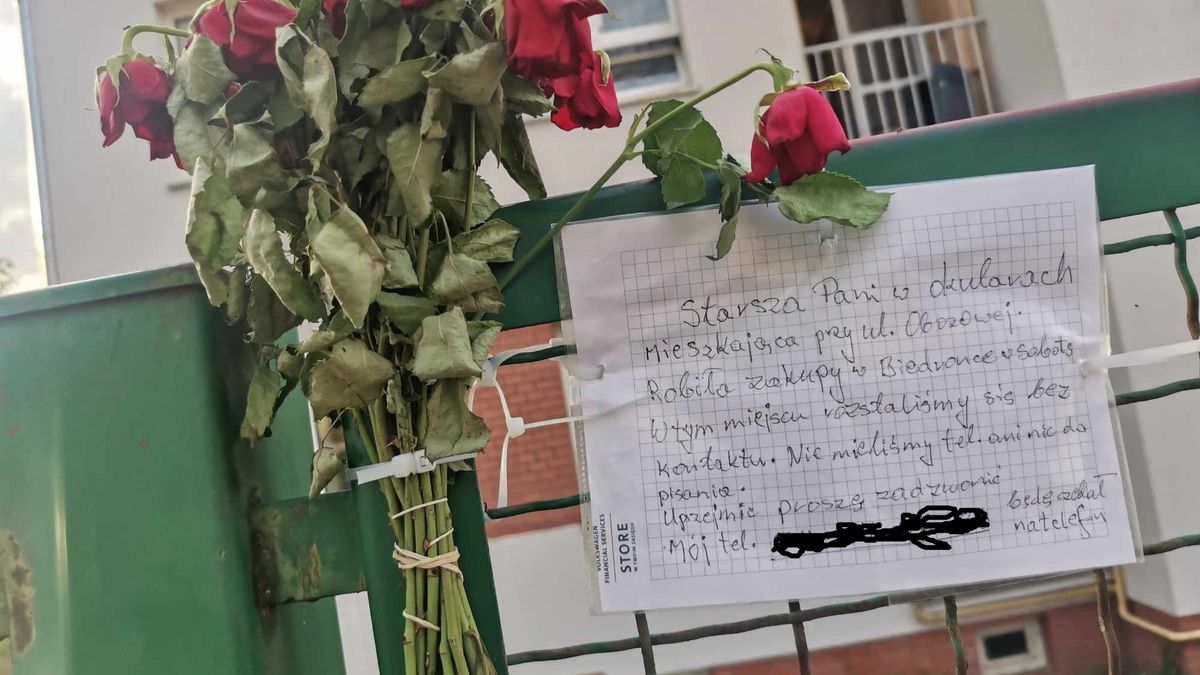 Starsza Pani w okularach
Mieszkająca przy ul. Obozowej.
Robiła zakupy w Biedronce w Sobotę
W tym miejscu rozstaliśmy się bez
kontaktu. Nie mieliśmy tel. ani nic do
pisania.
Uprzejmie proszę zadzwonić
Mój tel. będę czekał
na telefon
VOLKSWAGEN
FINANCIAL SERVICES
STORE
W TWOIM ZASIĘGU